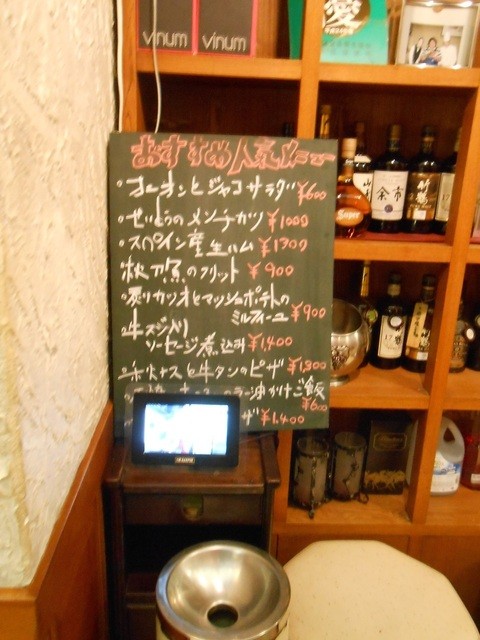 vinum
vinum
愛
おすすめ人気メニュー
・オニオンとジャコサラダ ¥600
のメンチカツ ¥1000
・スペイン産生ハム ¥1300
秋刀魚のフリット ¥900
・炙りカツオとマッシュポテトの
ミルフィーユ ¥900
・牛スジ入り
ソーセージ煮込み ¥1,400
と牛タンのピザ ¥1,300
ラー油かけご飯
¥600
ザ ¥1,400
Super
余市
竹鶴